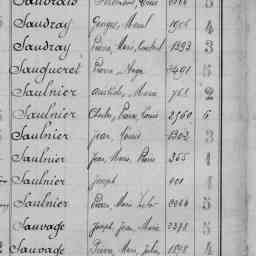 Saudray Georges, Marcel 1906 4
Saudray Pierre, Marie, 1893 3
Sauqueret Pierre, 2401 5
Saulnier Aristide, Marie 768 2
Saulnier Charles, Pierre, Louis 2560 6
Saulnier Jean, Louis 1302 3
Saulnier Jean, Marie, Pierre 365 1
Saulnier Joseph 401 1
Saulnier Pierre, Marie 2066 5
Sauvage Joseph, Jean, Marie 2378 5
Sauvage Pierre, Marie, Jules 1898 4